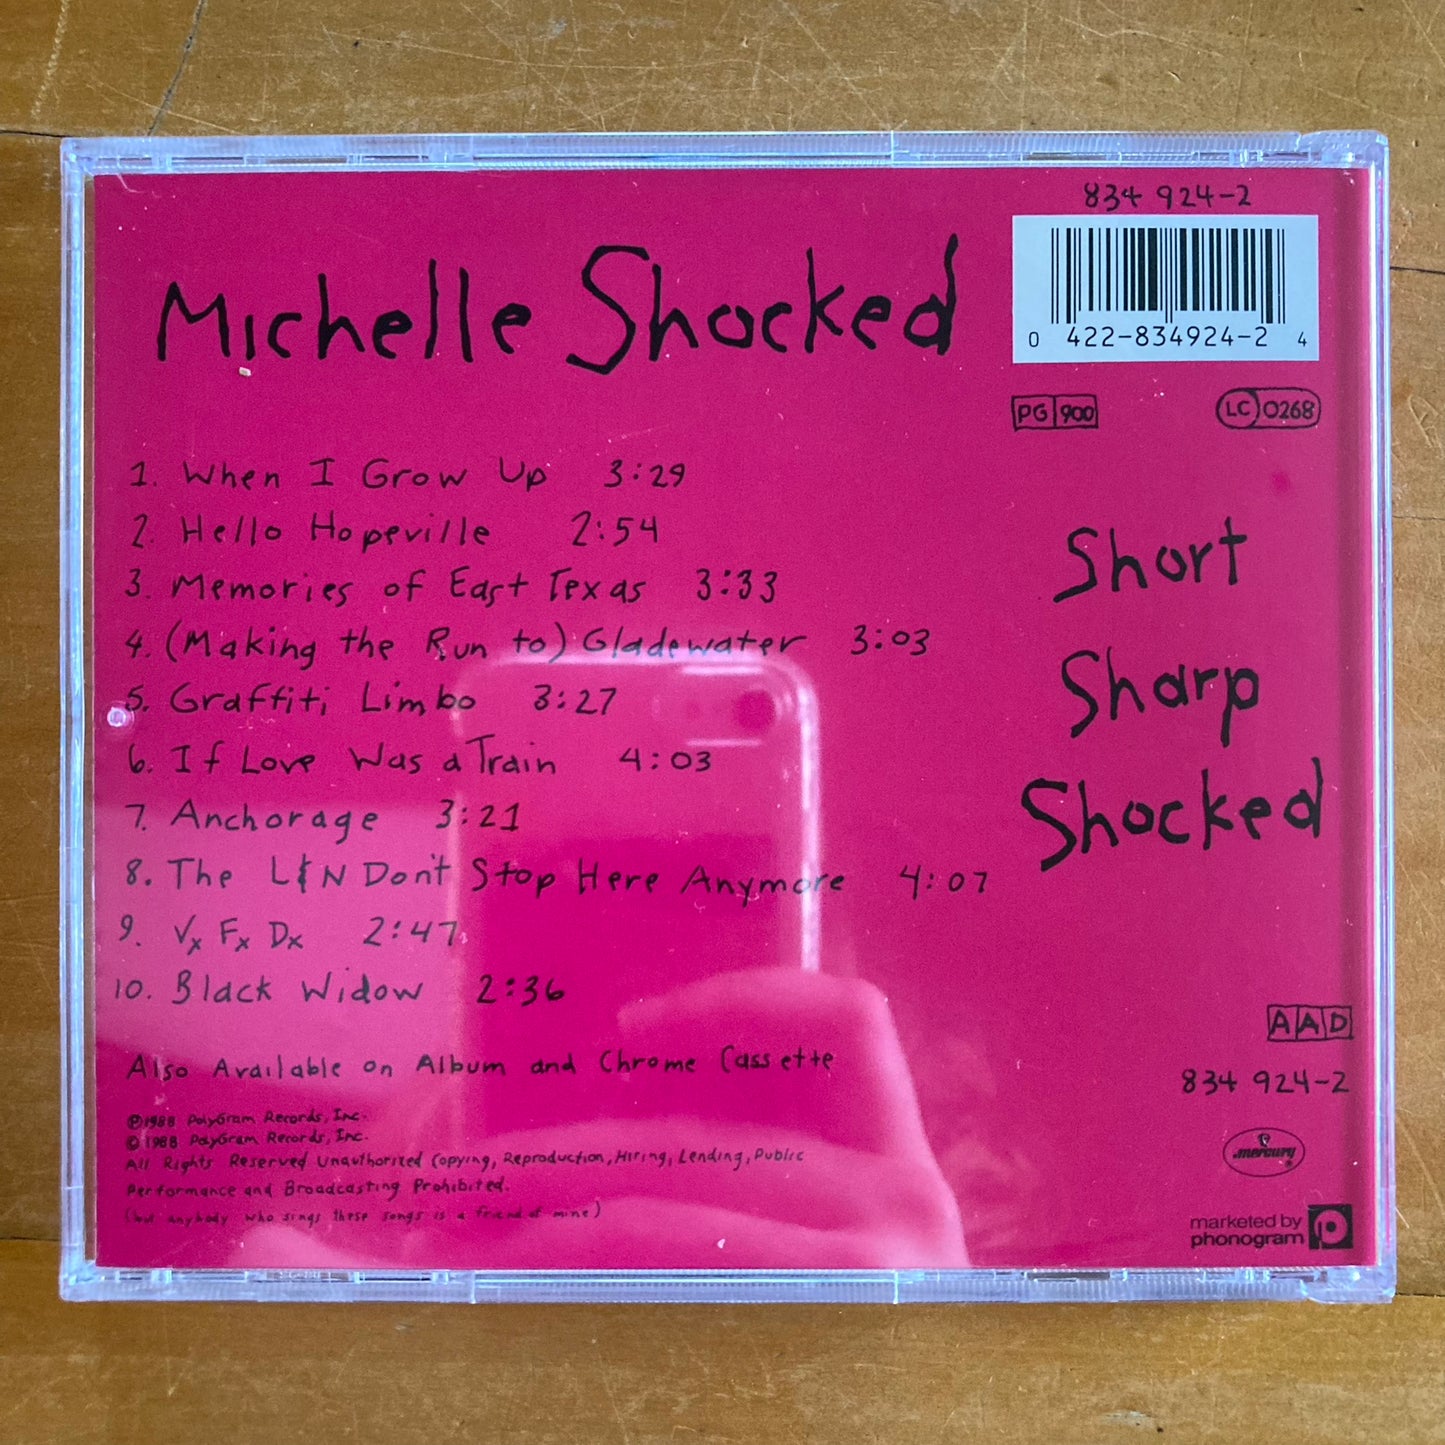 834 924-2
Michelle Shocked
0 422-834924-2 4
PG 900
LC 0268
1. When I Grow Up 3:29
2. Hello Hopeville 2:54
3. Memories of East Texas 3:33
4. (Making the Run to) Gladewater 3:03
5. Graffiti Limbo 3:27
6. If Love Was a Train 4:03
7. Anchorage 3:21
8. The L&N Don't Stop Here Anymore 4:07
9. Vx Fx Dx 2:47
10. Black Widow 2:36
Short
Sharp
Shocked
Also Available on Album and Chrome Cassette
℗1988 PolyGram Records, Inc.
©1988 PolyGram Records, Inc.
All Rights Reserved Unauthorized Copying, Reproduction, Hiring, Lending, Public
Performance and Broadcasting Prohibited.
(but anybody who sings these songs is a friend of mine)
AAD
834 924-2
mercury
marketed by
phonogram